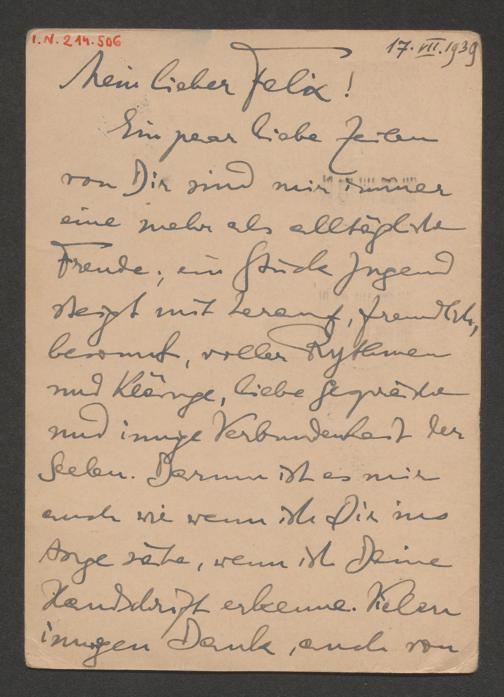 I.N. 214.506
17. VII. 1939
Mein lieber Felix!
Ein paar liebe Zeilen
von Dir sind mir immer
eine mehr als alltägliche
Freude; ein Stück Jugend
steigt mit herauf, freundlich,
besonnt, voller Rythmen
und Klänge, liebe Gespräche
und innige Verbundenheit der
Seelen. Darum ist es mir
auch wie wenn ich Dir ins
Auge sähe, wenn ich Deine
Handschrift erkenne. Vielen
innigen Dank, auch von